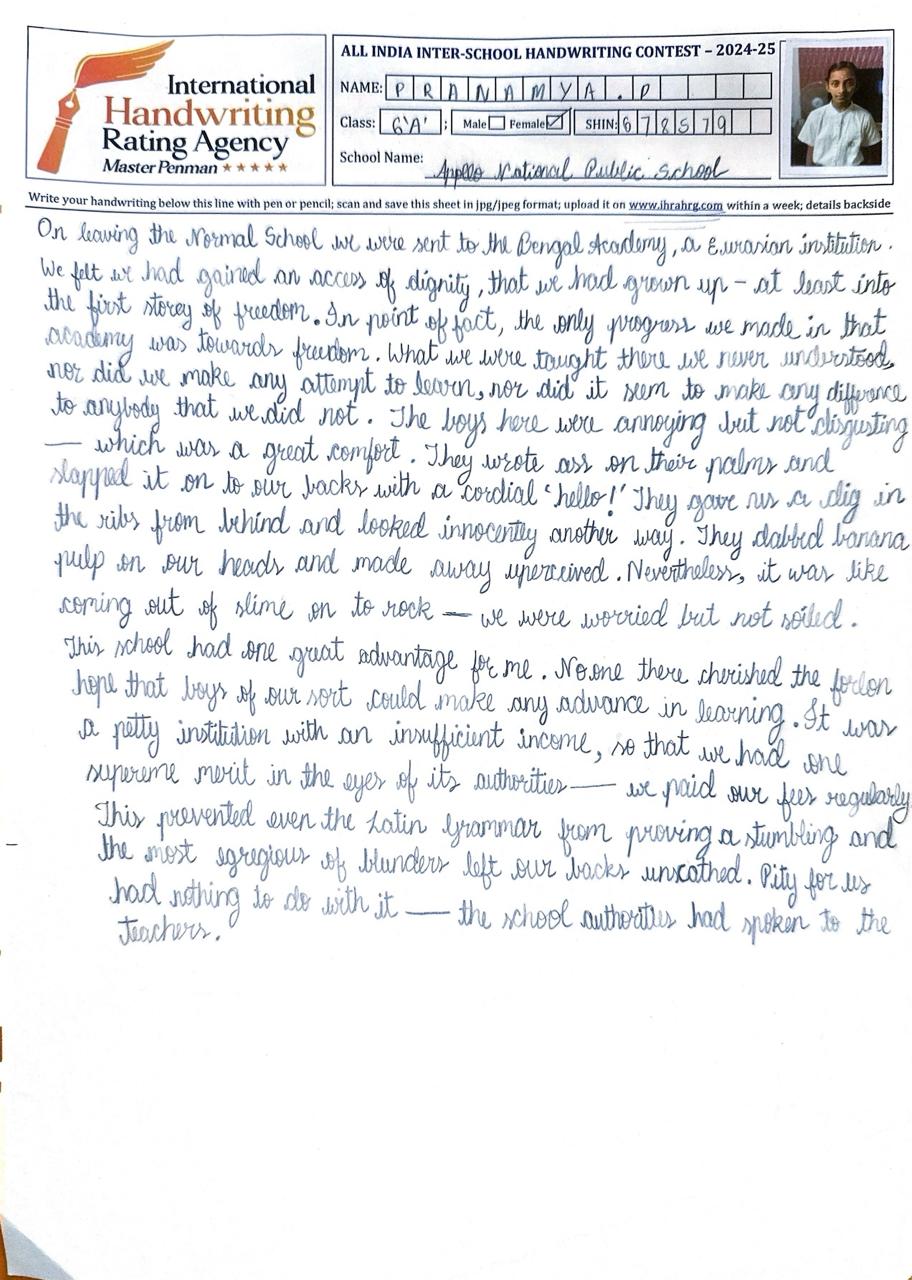 International
Handwriting
Rating Agency
Master Penman ★★★★★
ALL INDIA INTER-SCHOOL HANDWRITING CONTEST – 2024-25
NAME: PRANAMYA.P
Class: 6'A' ; Male Female SHIN: 678579
School Name: Apollo National Public School
Write your handwriting below this line with pen or pencil; scan and save this sheet in jpg/jpeg format; upload it on www.ihrahrg.com within a week; details backside
On leaving the Normal School we were sent to the Bengal Academy, a Eurasian institution.
We felt we had gained an access of dignity, that we had grown up – at least into
the first storey of freedom. In point of fact, the only progress we made in that
academy was towards freedom. What we were taught there we never understood,
nor did we make any attempt to learn, nor did it seem to make any difference
to anybody that we did not. The boys here were annoying but not disgusting
— which was a great comfort. They wrote ass on their palms and
slapped it on to our backs with a cordial 'hello!' They gave us a dig in
the ribs from behind and looked innocently another way. They dabbed banana
pulp on our heads and made away uperceived. Nevertheless, it was like
coming out of slime on to rock — we were worried but not soiled.
This school had one great advantage for me. No one there cherished the forlon
hope that boys of our sort could make any advance in learning. It was
a petty institution with an insufficient income, so that we had one
supreme merit in the eyes of its authorities — we paid our fees regularly
This prevented even the Latin Grammar from proving a stumbling and
the most egregious of blunders left our backs unscathed. Pity for us
had nothing to do with it — the school authorities had spoken to the
teachers.